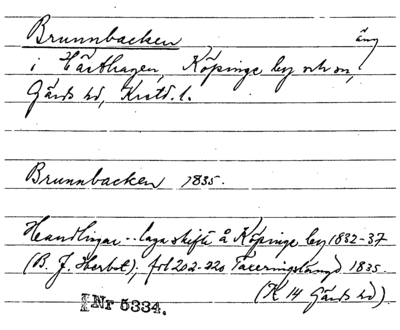 Brunnbacken äng
i Hästhagen, Köpinge by och sn,
Gärds hd, Krstd. l.
Brunnbacken 1835.
Handlingar .. laga skifte å Köpinge by 1832-37
(B. J. Herbst); fol 202-220 Taxeringslängd 1835.
(K 14 Gärds hd)
Nr 5334.